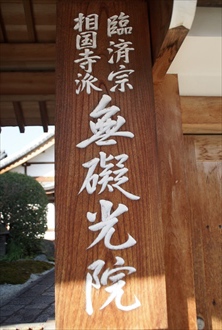 臨済宗
相国寺派
無礙光院